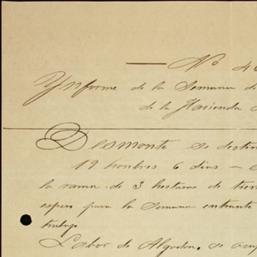 No 4
Ynforme de la Semana d
de la Hacienda
Desmonte se destin
19 hombres 6 dias
la rama de 3 hectareas de
espera para la Semana entrante
trabajo
Labor de Algodon, se